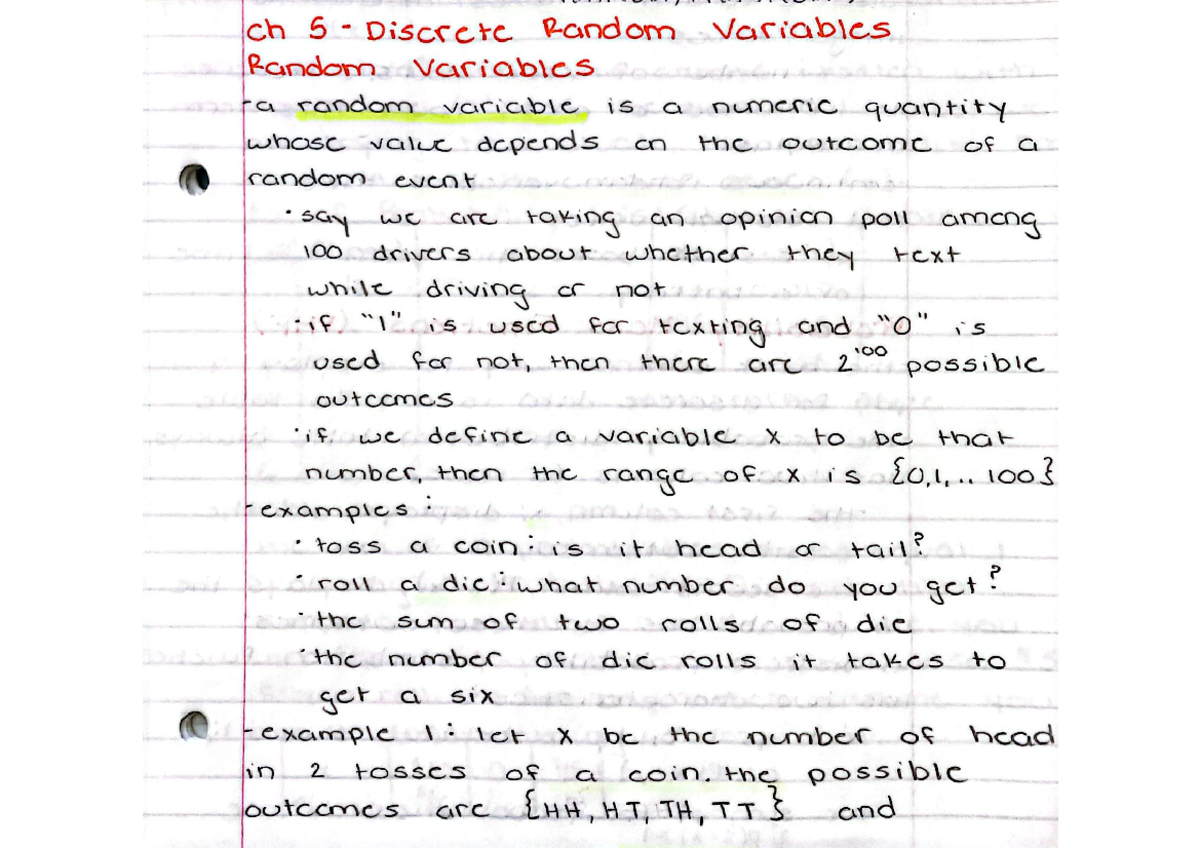 ch 5 - Discrete Random Variables
Random Variables
-a random variable is a numeric quantity
whose value depends on the outcome of a
random event
· say we are taking an opinion poll among
100 drivers about whether they text
while driving or not
· if "1" is used for texting and "0" is
used for not, then there are 2¹⁰⁰ possible
outcomes
· if we define a variable x to be that
number, then the range of x is {0,1,.. 100}
-examples:
· toss a coin: is it head or tail?
· roll a die: what number do you get?
· the sum of two rolls of die
· the number of die rolls it takes to
get a six
-example 1: let x be the number of head
in 2 tosses of a coin. the possible
outcomes are {HH, HT, TH, TT} and